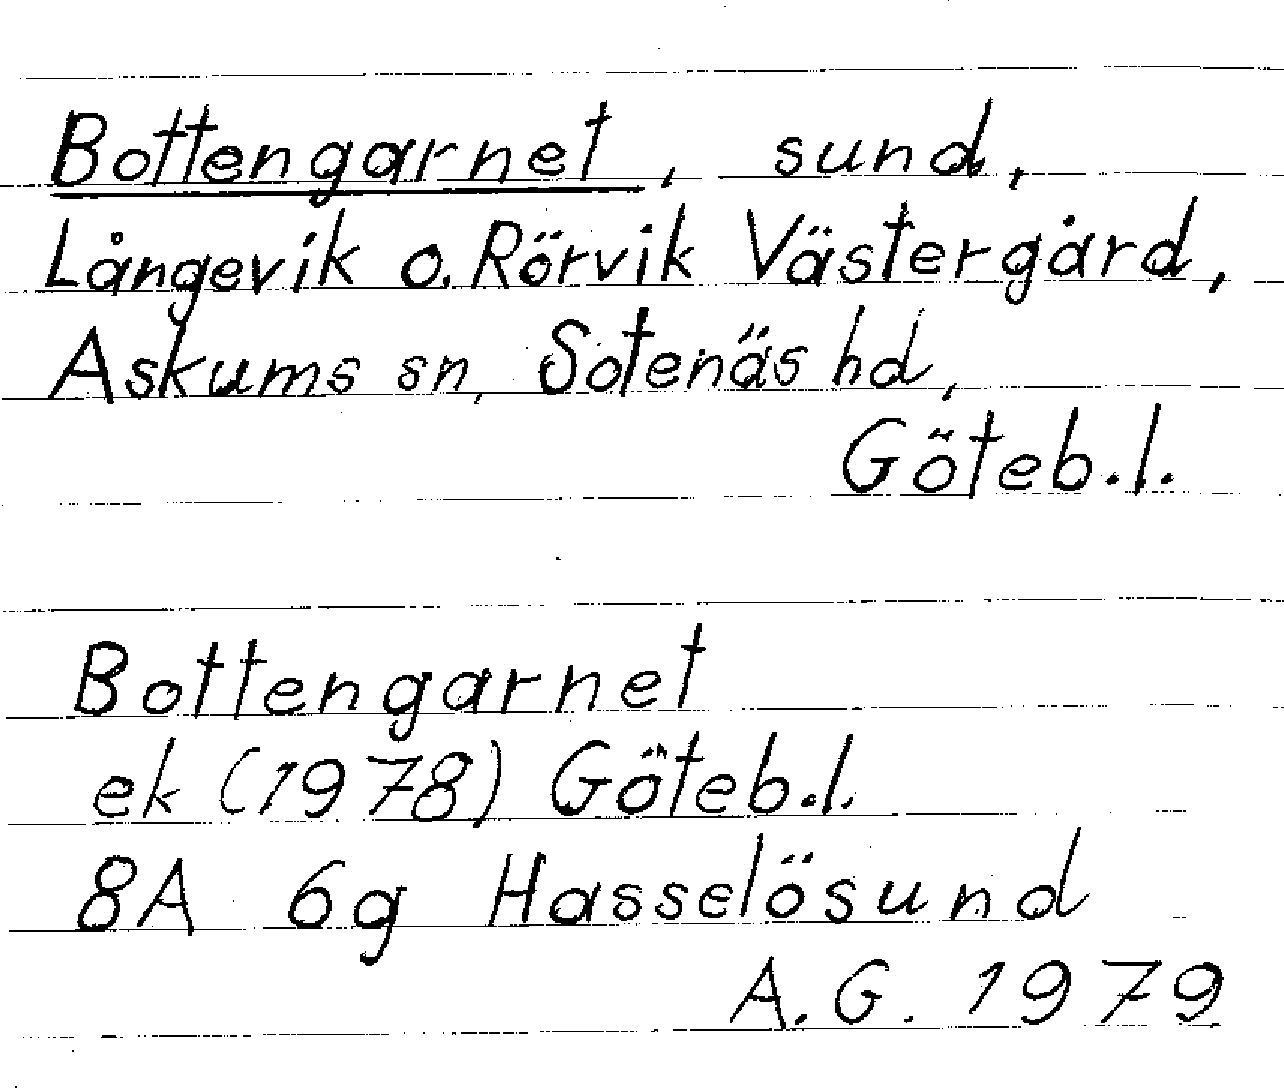 Bottengarnet, sund,
Långevik o. Rörvik Västergård,
Askums sn, Sotenäs hd,
Göteb.l.
Bottengarnet
ek (1978) Göteb.l.
8A 6g Hasselösund
A.G. 1979